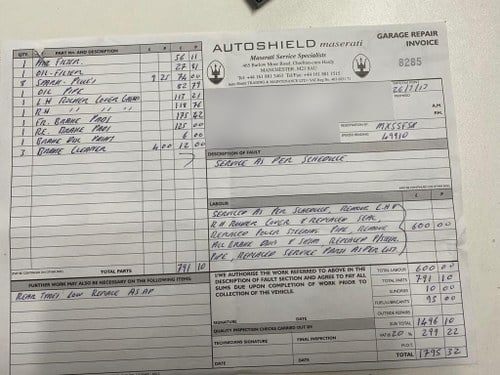 AUTOSHIELD maserati
Maserati Service Specialists
465 Barlow Moor Road, Chorlton-cum-Hardy
MANCHESTER M21 8AU
GARAGE REPAIR
INVOICE
8285
26/7/17
MX55FSA
49910
A.M
P.M.
QTY PART No. AND DESCRIPTION £ P £ P
1 AIR FILTER 56 11
1 OIL FILTER 27 81
8 SPARK PLUGS 9 25 74 00
1 OIL PIPE 82 79
1 L.H ROCKER COVER GASKET 117 21
1 R.H " " " 118 76
1 FR. BRAKE PADS 175 42
1 RE. BRAKE PADS 125 00
1 8 00
3 BRAKE CLEANER 4 00 12 00
TOTAL PARTS 791 10
FURTHER WORK MAY ALSO BE NECESSARY ON THE FOLLOWING ITEMS:
REAR TYRES LOW REPLACE ASAP
DESCRIPTION OF FAULT
SERVICE AS PER SCHEDULE
LABOUR £ P
SERVICED AS PER SCHEDULE, REMOVE L.H &
R.H ROCKER COVER & REPLACED SEAL,
REPLACED POWER STEERING PIPE, REMOVE 600 00
ALL BRAKE
PIPE, REPLACED SERVICE PARTS AS PER LIST.
I/WE AUTHORISE THE WORK REFERRED TO ABOVE IN THE
DESCRIPTION OF FAULT SECTION AND AGREE TO PAY ALL
SUMS DUE UPON COMPLETION OF WORK PRIOR TO
COLLECTION OF THE VEHICLE.
SIGNATURE DATE
QUALITY INSPECTION CHECKS CARRIED OUT BY
TECHNICIANS SIGNATURE FINAL INSPECTION
SIGNATURE DATE
TOTAL LABOUR 600 00
TOTAL PARTS 791 10
SUNDRIES 10 00
FUEL/LUBRICANTS 95 00
OUTSIDE REPAIRS
SUB TOTAL 1496 10
VAT@ 20 % 299 22
M.O.T.
TOTAL 1795 32